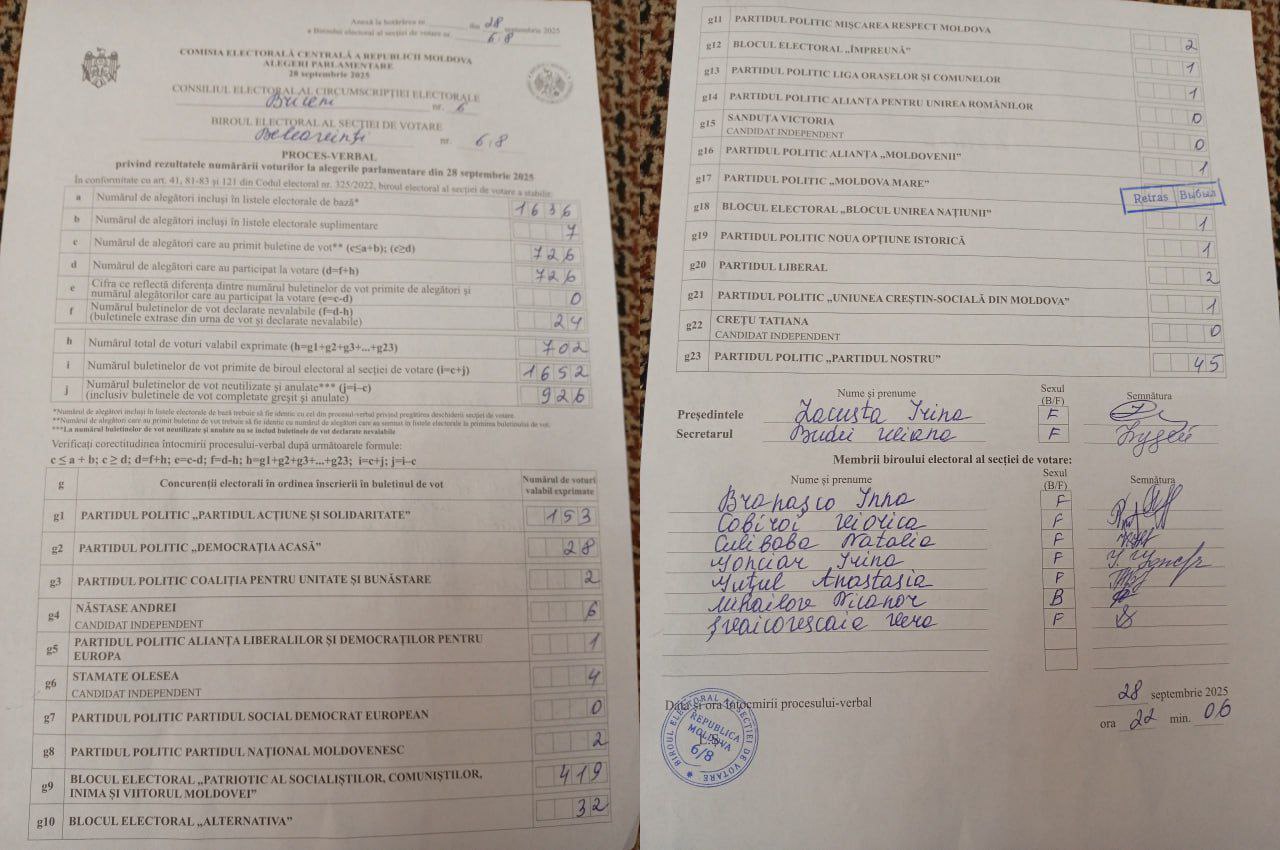 Anexă la hotărârea nr. din 28 septembrie 2025
a Biroului electoral al secției de votare nr. 6/8
COMISIA ELECTORALĂ CENTRALĂ A REPUBLICII MOLDOVA
ALEGERI PARLAMENTARE
28 septembrie 2025
CONSILIUL ELECTORAL AL CIRCUMSCRIPȚIEI ELECTORALE
Briceni nr. 6
BIROUL ELECTORAL AL SECȚIEI DE VOTARE
nr. 6/8
PROCES-VERBAL
privind rezultatele numărării voturilor la alegerile parlamentare din 28 septembrie 2025
În conformitate cu art. 41, 81-83 și 121 din Codul electoral nr. 325/2022, biroul electoral al secției de votare a stabilit:
a Numărul de alegători incluși în listele electorale de bază* 1636
b Numărul de alegători incluși în listele electorale suplimentare 7
c Numărul de alegători care au primit buletine de vot** (c≤a+b); (c≥d) 726
d Numărul de alegători care au participat la votare (d=f+h) 726
e Cifra ce reflectă diferența dintre numărul buletinelor de vot primite de alegători și
numărul alegătorilor care au participat la votare (e=c-d) 0
f Numărul buletinelor de vot declarate nevalabile (f=d-h)
(buletinele extrase din urna de vot și declarate nevalabile) 24
h Numărul total de voturi valabil exprimate (h=g1+g2+g3+...+g23) 702
i Numărul buletinelor de vot primite de biroul electoral al secției de votare (i=c+j) 1652
j Numărul buletinelor de vot neutilizate și anulate*** (j=i–c)
(inclusiv buletinele de vot completate greșit și anulate) 926
*Numărul de alegători incluși în listele electorale de bază trebuie să fie identic cu cel din procesul-verbal privind pregătirea deschiderii secției de votare.
**Numărul de alegători care au primit buletine de vot trebuie să fie identic cu numărul de alegători care au semnat în listele electorale la primirea buletinului de vot.
***La numărul buletinelor de vot neutilizate și anulate nu se includ buletinele de vot declarate nevalabile
Verificați corectitudinea întocmirii procesului-verbal după următoarele formule:
c ≤ a + b; c ≥ d; d=f+h; e=c-d; f=d-h; h=g1+g2+g3+...+g23; i=c+j; j=i–c
g Concurenții electorali în ordinea înscrierii în buletinul de vot Numărul de voturi
valabil exprimate
g1 PARTIDUL POLITIC „PARTIDUL ACȚIUNE ȘI SOLIDARITATE” 153
g2 PARTIDUL POLITIC „DEMOCRAȚIA ACASĂ” 28
g3 PARTIDUL POLITIC COALIȚIA PENTRU UNITATE ȘI BUNĂSTARE 2
g4 NĂSTASE ANDREI
CANDIDAT INDEPENDENT 6
g5 PARTIDUL POLITIC ALIANȚA LIBERALILOR ȘI DEMOCRAȚILOR PENTRU
EUROPA 1
g6 STAMATE OLESEA
CANDIDAT INDEPENDENT 4
g7 PARTIDUL POLITIC PARTIDUL SOCIAL DEMOCRAT EUROPEAN 0
g8 PARTIDUL POLITIC PARTIDUL NAȚIONAL MOLDOVENESC 2
g9 BLOCUL ELECTORAL „PATRIOTIC AL SOCIALIȘTILOR, COMUNIȘTILOR,
INIMA ȘI VIITORUL MOLDOVEI” 419
g10 BLOCUL ELECTORAL „ALTERNATIVA” 32
g11 PARTIDUL POLITIC MIȘCAREA RESPECT MOLDOVA 2
g12 BLOCUL ELECTORAL „ÎMPREUNĂ” 1
g13 PARTIDUL POLITIC LIGA ORAȘELOR ȘI COMUNELOR 1
g14 PARTIDUL POLITIC ALIANȚA PENTRU UNIREA ROMÂNILOR 0
g15 SANDUȚA VICTORIA
CANDIDAT INDEPENDENT 0
g16 PARTIDUL POLITIC ALIANȚA „MOLDOVENII” 1
g17 PARTIDUL POLITIC „MOLDOVA MARE” Retras Выбыл
g18 BLOCUL ELECTORAL „BLOCUL UNIREA NAȚIUNII” 1
g19 PARTIDUL POLITIC NOUA OPȚIUNE ISTORICĂ 1
g20 PARTIDUL LIBERAL 2
g21 PARTIDUL POLITIC „UNIUNEA CREȘTIN-SOCIALĂ DIN MOLDOVA” 1
g22 CREȚU TATIANA
CANDIDAT INDEPENDENT 0
g23 PARTIDUL POLITIC „PARTIDUL NOSTRU” 45
Nume și prenume Sexul
(B/F) Semnătura
Președintele Lacusta Irina F
Secretarul F
Membrii biroului electoral al secției de votare:
Nume și prenume Sexul
(B/F) Semnătura
Inna F
F
Culibaba Natalia F
Irina F
Anastasia F
Nicanor B
F
Data și ora întocmirii procesului-verbal 28 septembrie 2025
ora 22 min. 06
BIROUL ELECTORAL AL SECȚIEI DE VOTARE
REPUBLICA
MOLDOVA
L.Ș.
6/8